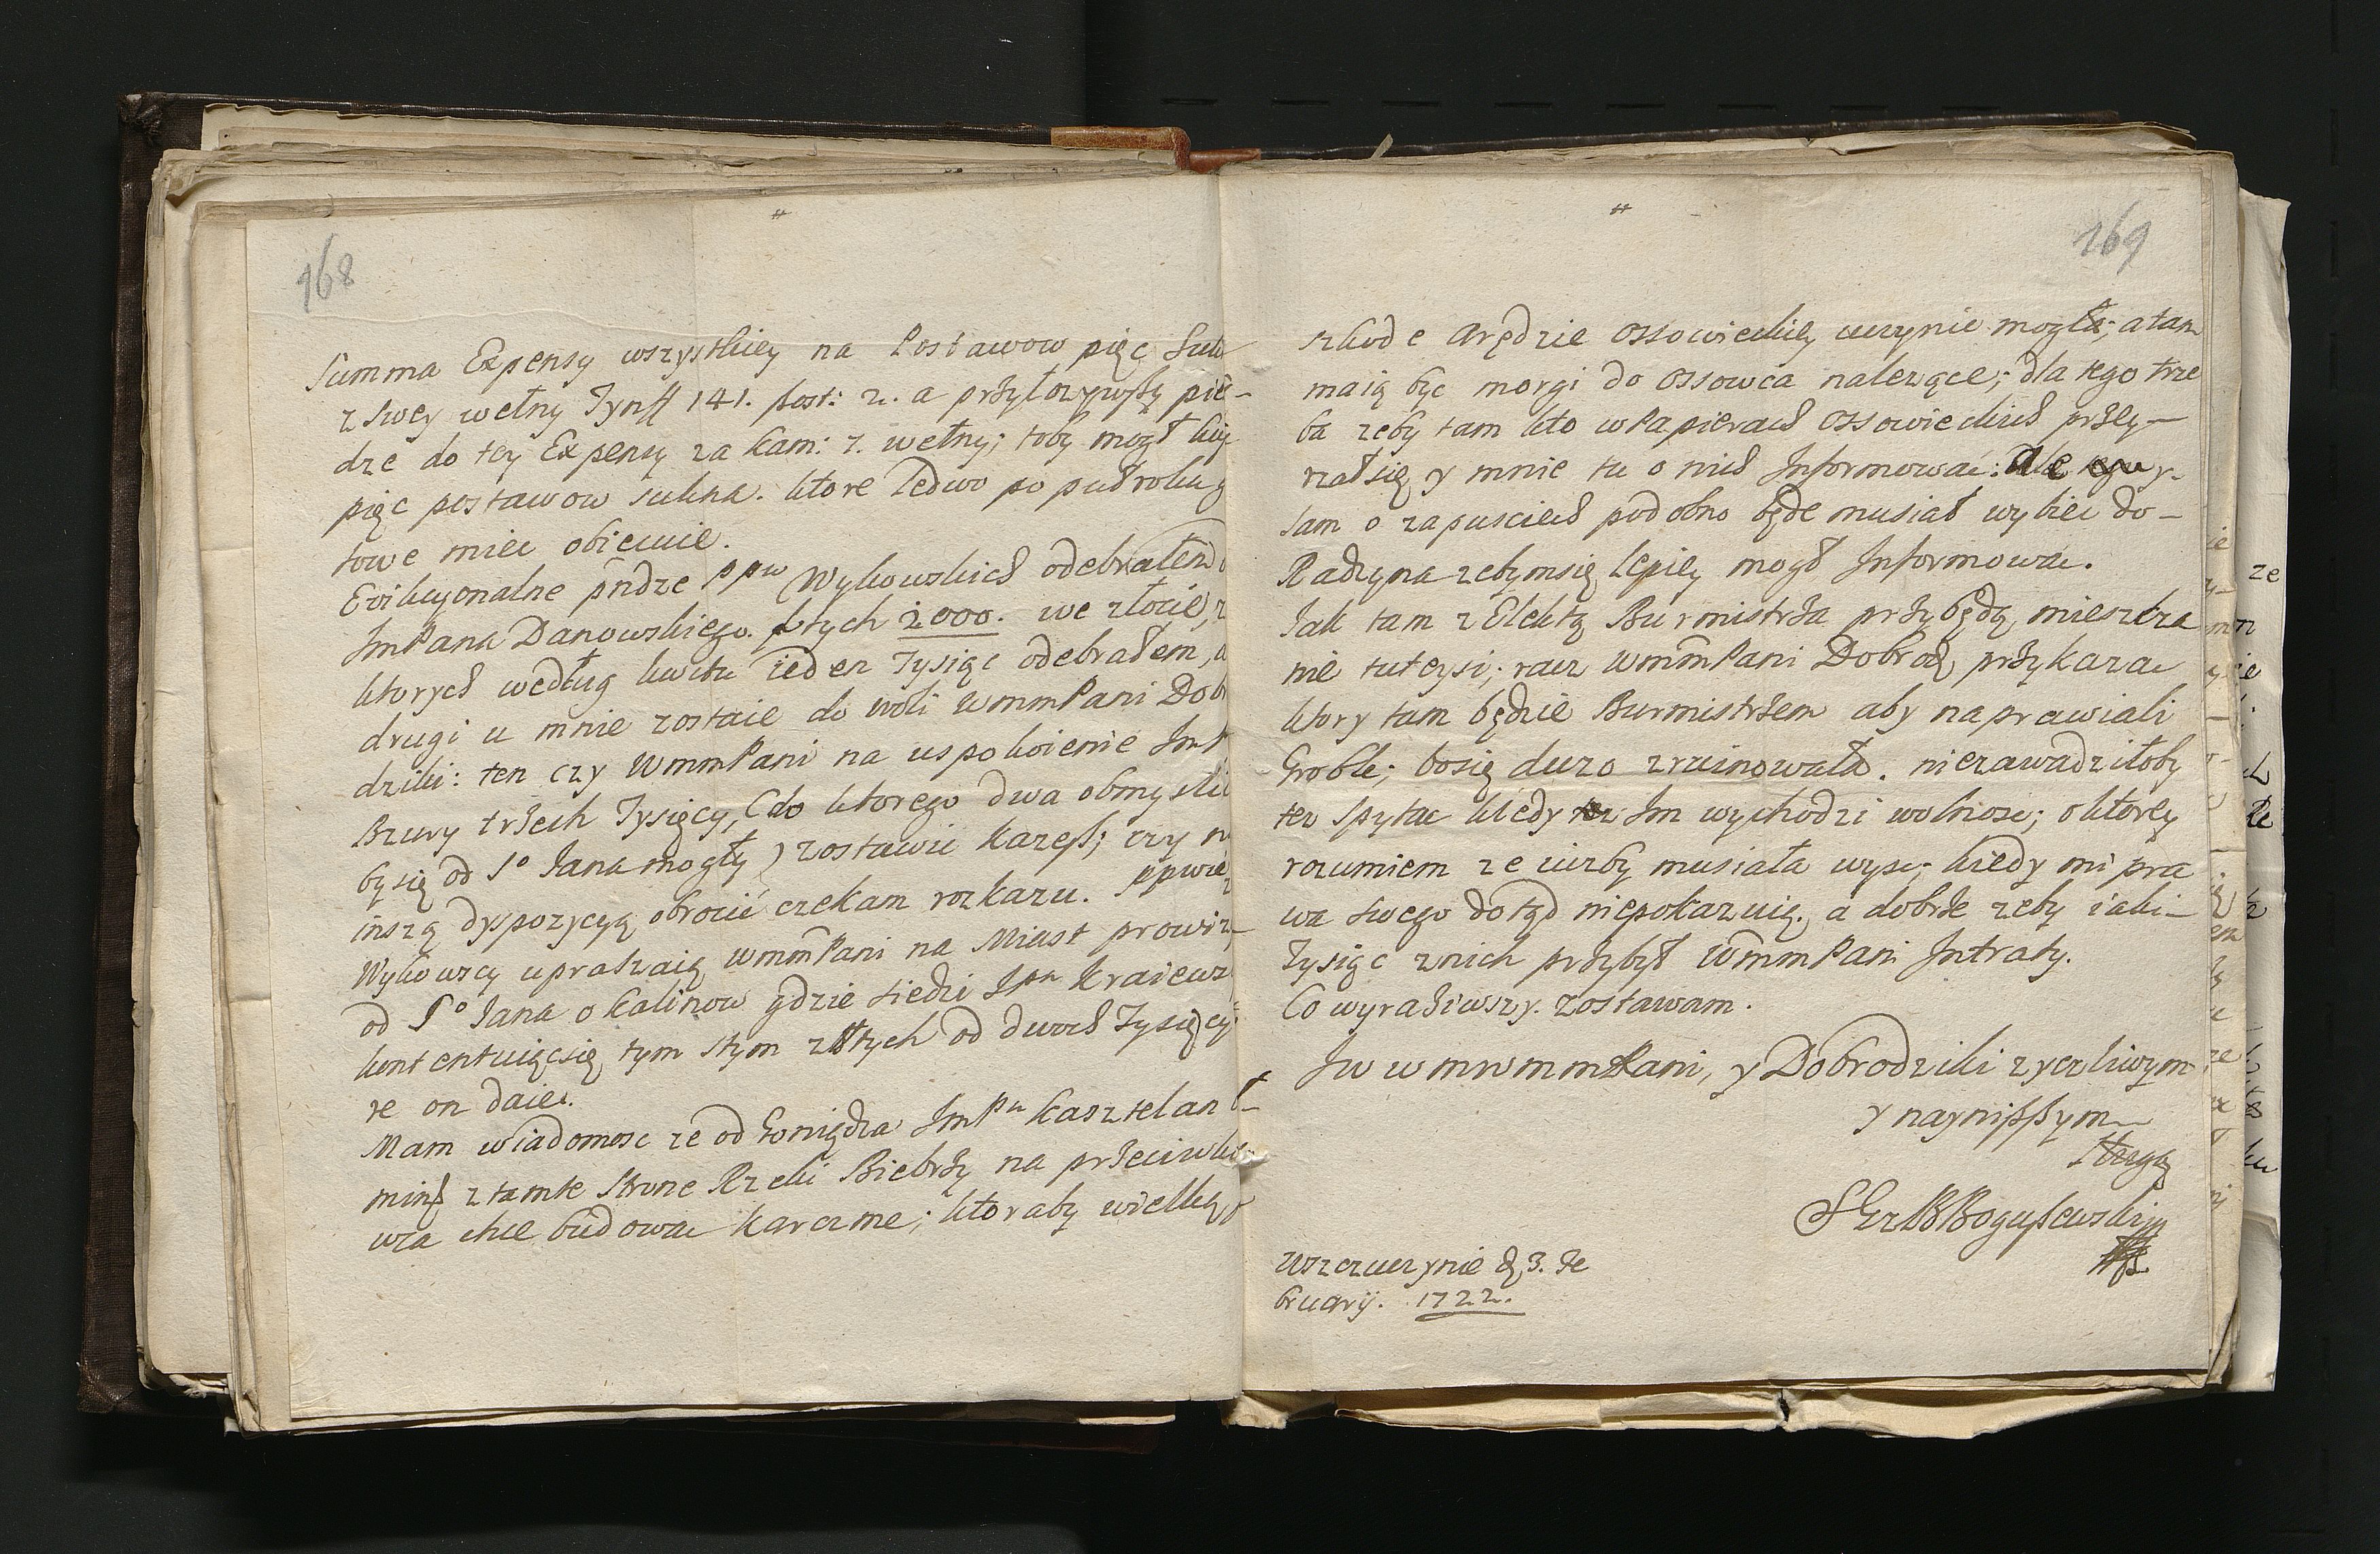 168
Summa Expensy wszystkiey na Postawow pięc Suk
z Swey wełny Tynff 141. ßost: 2. a przyłozywszy pie-
dze do tey Expensy za Kam: 7. wełny; toby mogł
pięc postawow sukna. ktore ledwo po puł roku g
towe miec obiecuie.
Ewikcyonalne pndze ppw Wykowskich odebrałem o
ImPana Danowskiego. złtych 2000. we złocie, z
ktorych według kwitu ieden Tysiąc odebrałem, a
drugi u mnie zostaie do woli WmmPani Dob
dziki: ten czy WmmPani na uspokoienie ImP
Bzury trzech Tysięcy, (do ktorego dwa obmysli
by się od So Jana mogły) zostawic każesz; czy n
inszą dyspozycyą obrocić czekam rozkazu. ppwie
Wykowscy upraszaią WmmPani na Miast prowiz-
od So Jana o Kalinow gdzie siedzi Jpn Kraiews
kontentuiącsię tym stym złtych od dwoch Tysięcy
ze on daie.
Mam wiadomosc ze od Goniądza ImPn Kasztelan
minß z tamte Strone Rzeki Biebrzy na przeciwko
wca chce budowac Karczme; ktoraby wielką
169
szkode Arędzie Ossowieckiey uczynic mogła; a tam
maią byc morgi do Ossowca nalezące; dla tego trze
ba zeby tam kto w Papierach Ossowieckich przey-
rzał się y mnie tu o nich Informowac: Ale y
sam o zapusciech podobno będe musiał wybiec do-
Radzyna zebymsię lepiey mogł Informowac.
Jak tam z Elektą Burmistrza przybędą mieszcza
nie tuteysi; racz WmmPani Dobrodz przykazac
ktory tam będzie Burmistrzem aby naprawiali
Groble; bosię duzo zruinowała. niezawadziłoby
tez spytac kiedy Im wychodzi wolnosc; o ktorey
rozumiem ze iuzby musiała wysc; kiedy mi pra
wa swego dotąd niepokazuią. a dobrze zeby iaki-
Tysiąc znich przybył WmmPani Intraty.
Co wyraziwszy. zostawam.
Jw w mnmmPani, y Dobrodziki zyczliwym
y naynißszym
Sługą
BBogusewskim
Wszczuczynie d 3. Fe
bruarij. 1722.